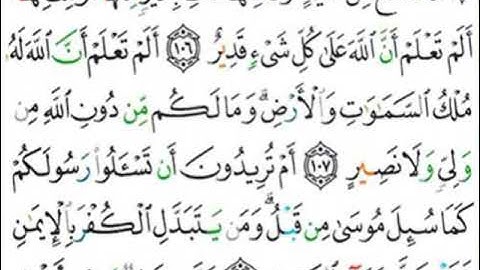 أَلَمْ تَعْلَمْ أَنَّ ٱللَّهَ عَلَىٰ كُلِّ شَىْءٍ قَدِيرٌ ١٠٦ أَلَمْ تَعْلَمْ أَنَّ ٱللَّهَ لَهُۥ
مُلْكُ ٱلسَّمَٰوَٰتِ وَٱلْأَرْضِ ۗ وَمَا لَكُم مِّن دُونِ ٱللَّهِ مِن
وَلِىٍّ وَلَا نَصِيرٍ ١٠٧ أَمْ تُرِيدُونَ أَن تَسْـَٔلُوا۟ رَسُولَكُمْ
كَمَا سُئِلَ مُوسَىٰ مِن قَبْلُ ۗ وَمَن يَتَبَدَّلِ ٱلْكُفْرَ بِٱلْإِيمَٰنِ